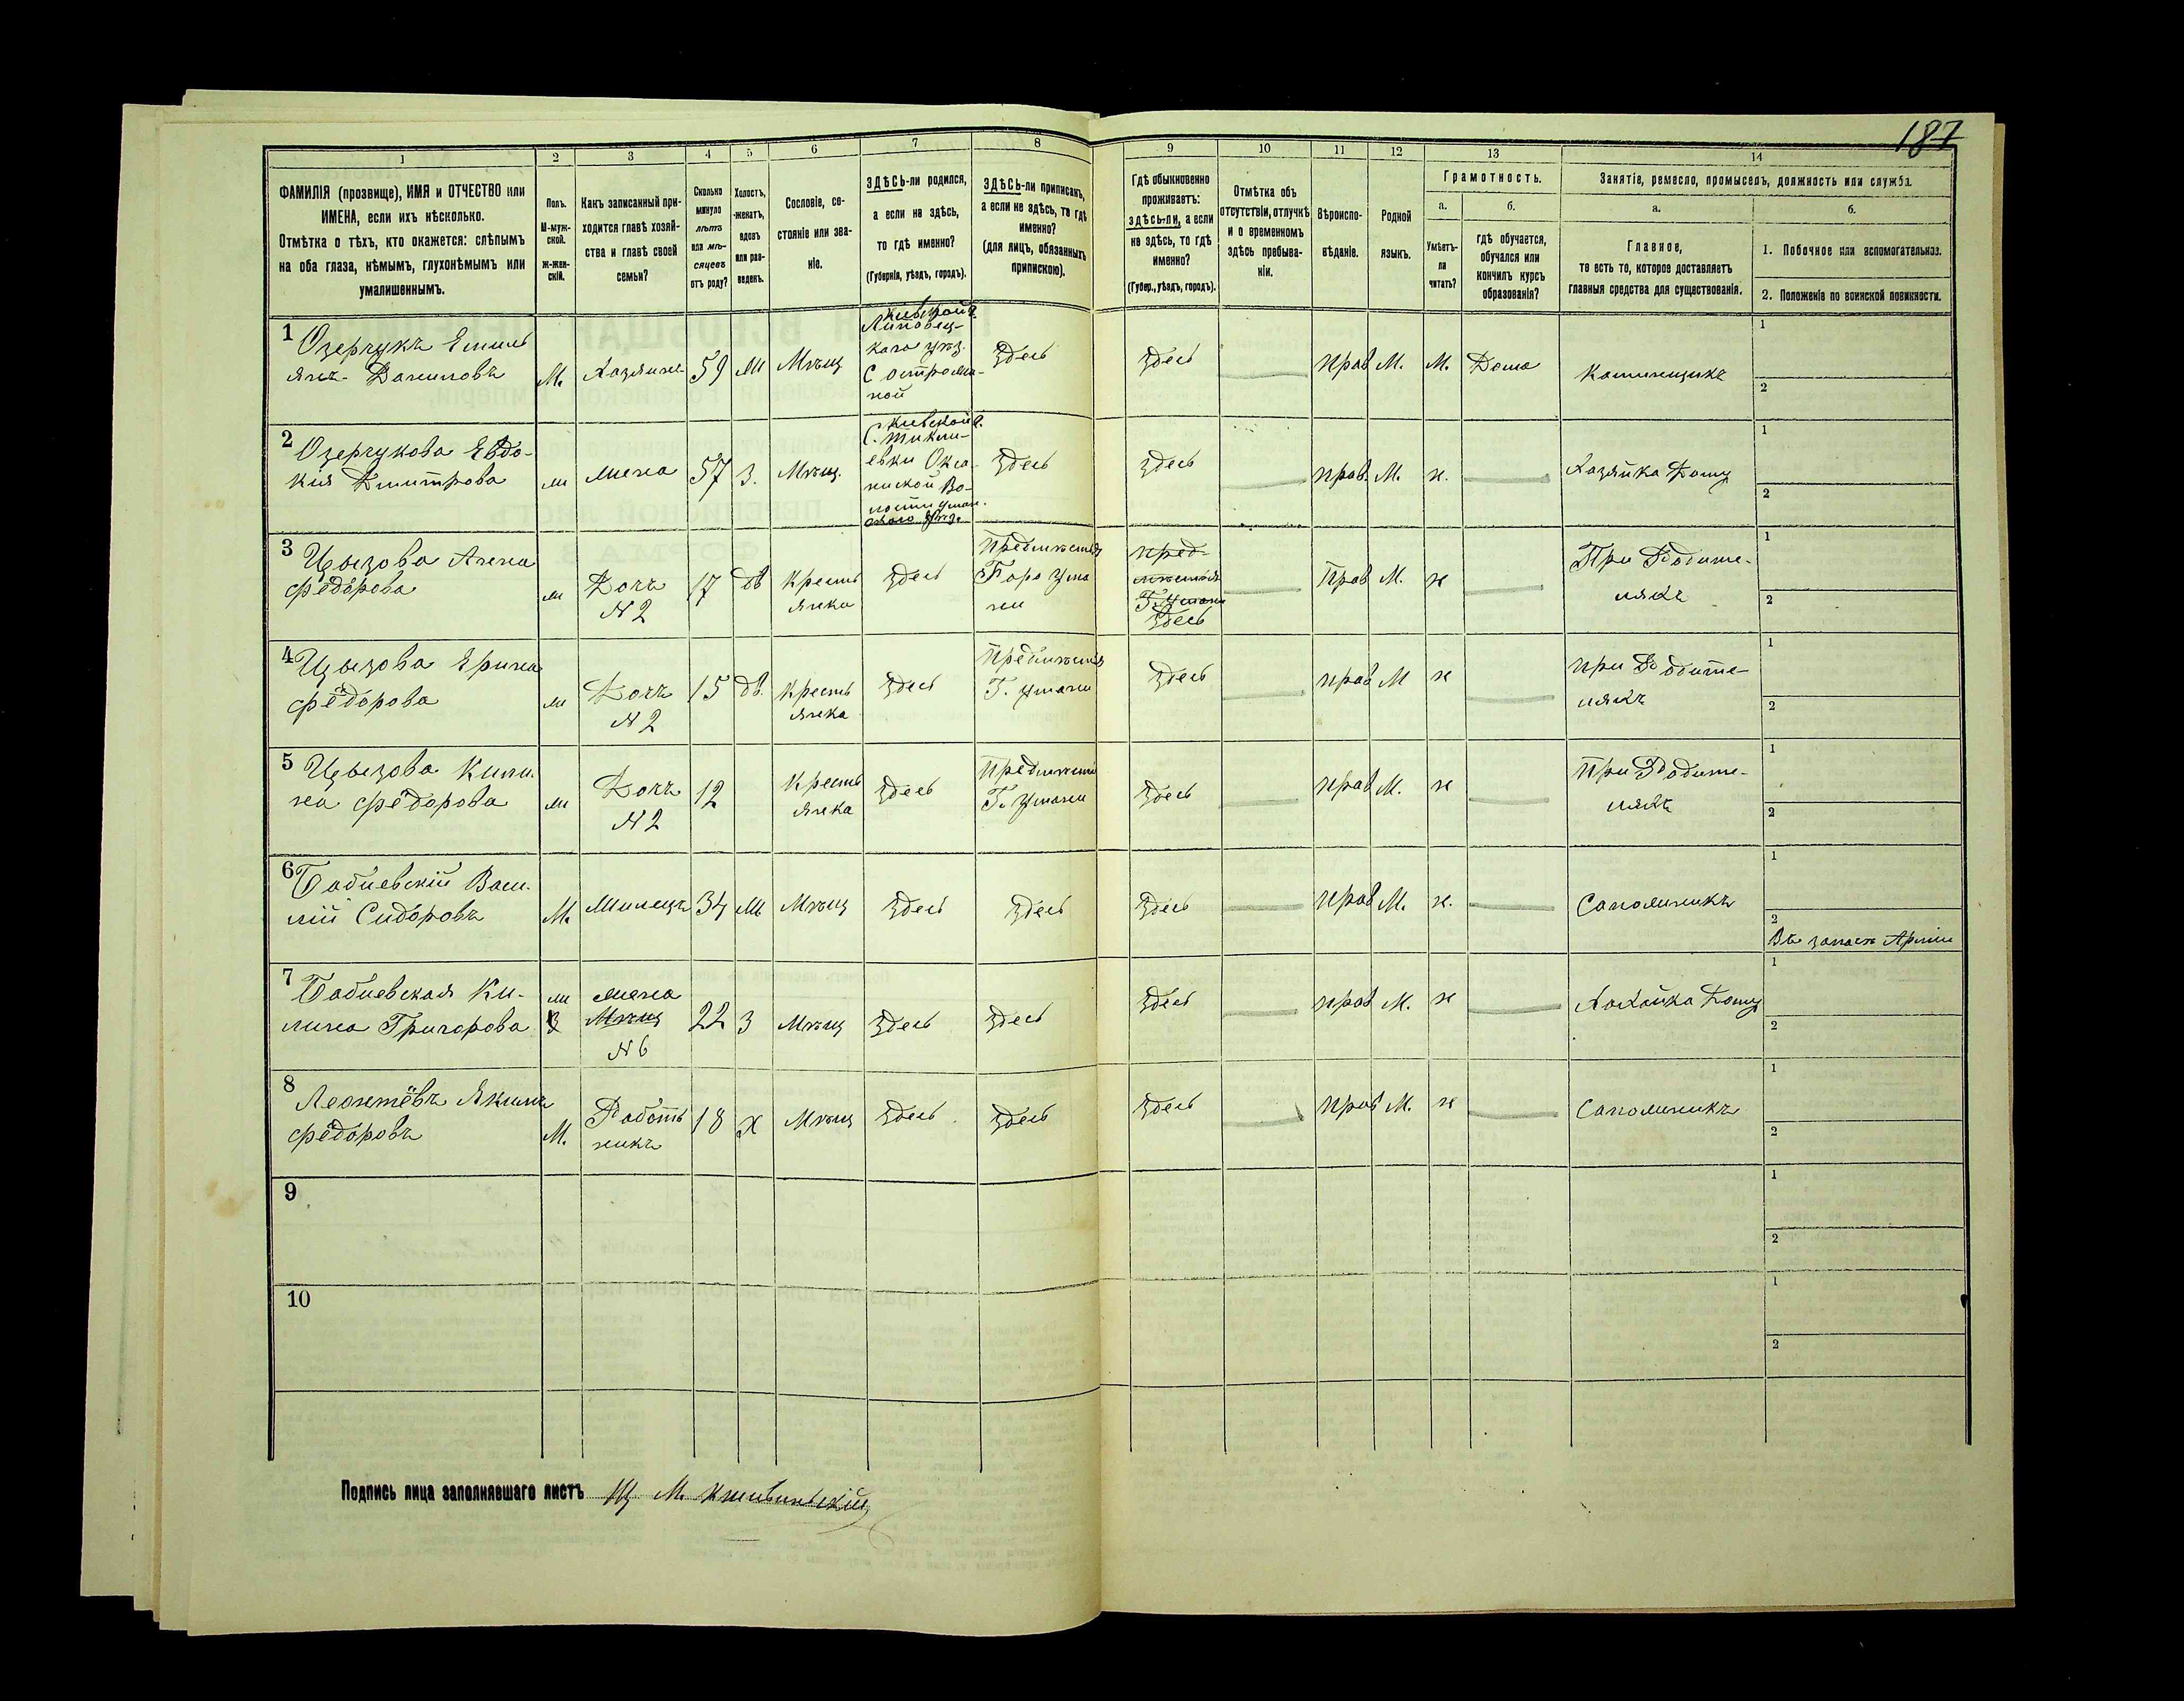 187
1 2 3 4 5 6 7 8 9 10 11 12 13 14
ФАМИЛІЯ (прозвище), ИМЯ и ОТЧЕСТВО или
ИМЕНА, если ихъ нѣсколько.
Отмѣтка о тѣхъ, кто окажется: слѣпымъ
на оба глаза, нѣмымъ, глухонѣмымъ или
умалишеннымъ.
Полъ.
М-муж-
ской.
ж-жен-
скій.
Какъ записанный при-
ходится главѣ хозяй-
ства и главѣ своей
семьи?
Сколько
минуло
лѣтъ
или мѣ-
сяцевъ
отъ роду?
Холостъ,
женатъ,
вдовъ
или раз-
веденъ.
Сословіе, со-
стояніе или зва-
ніе.
ЗДѢСЬ-ли родился,
а если не здѣсь,
то гдѣ именно?
(Губернія, уѣздъ, городъ).
ЗДѢСЬ-ли приписанъ,
а если не здѣсь, то гдѣ
именно?
(для лицъ, обязанныхъ
припискою).
Гдѣ обыкновенно
проживаетъ:
здѣсь-ли, а если
не здѣсь, то гдѣ
именно?
(Губер., уѣздъ, городъ).
Отмѣтка объ
отсутствіи, отлучкѣ
и о временномъ
здѣсь пребыва-
ніи.
Вѣроиспо-
вѣданіе.
Родной
языкъ.
Грамотность.
а.
Умѣетъ-
ли
читать?
б.
гдѣ обучается,
обучался или
кончилъ курсъ
образованія?
Занятіе, ремесло, промыселъ, должность или служба.
а.
Главное,
то есть то, которое доставляетъ
главныя средства для существованія.
б.
1. Побочное или вспомогательное.
2. Положеніе по воинской повинности.
1 Озерчукъ Емиль
янъ Даниловъ
М. Хазяинъ 59 ж Мѣщ
Киевской г.
Липовец-
каго уѣз.
здесь здесь прав М. М. Дома
1
2
2 Озерчукова Евдо-
кия Дмитрова
ж жена 57 З. Мѣщ.
Киевской г.
здесь здесь прав. М. н. Хазяйка Дому
1
2
3 Цызова Анна
Фёдорова
ж Дочь
N 2
17 дв Кресть
янка
здесь
Предмѣстья
Горо Ума
ни
пред-
мѣстья
Г. Умани
здесь
Прав М. н
При Родите-
ляхъ
1
2
4 Цызова Ерина
Фёдорова
ж Дочь
N 2
15 дв. Кресть
янка
здесь
Предмѣстя
Г. Умани
здесь прав М н
при Родите-
ляхъ
1
2
5 Цызова Кили-
на Фёдорова
ж Дочь
N 2
12 Кресть
янка
здесь
Предмѣсти
Г. Умани
здесь прав М. н
При Родите-
ляхъ
1
2
6 Бабиевскій Васи-
лій Сидоровъ
М. Жилецъ 34 ж Мѣщ здесь здесь здесь прав М. н. Сапожникъ
1
2
Въ запасѣ Арміи
7 Бабиевская Ки-
лина Григорова
ж
жена
Мѣщ
N 6
22 З Мѣщ здесь здесь здесь прав М. н Хахайка Дому
1
2
8 Леонтёвъ Якимъ
Фёдоровъ
М. Работ
никъ
18 х Мѣщ здесь здесь здесь прав М. н Сапожникъ
1
2
9
1
2
10
1
2
Подпись лица заполнявшаго листъ